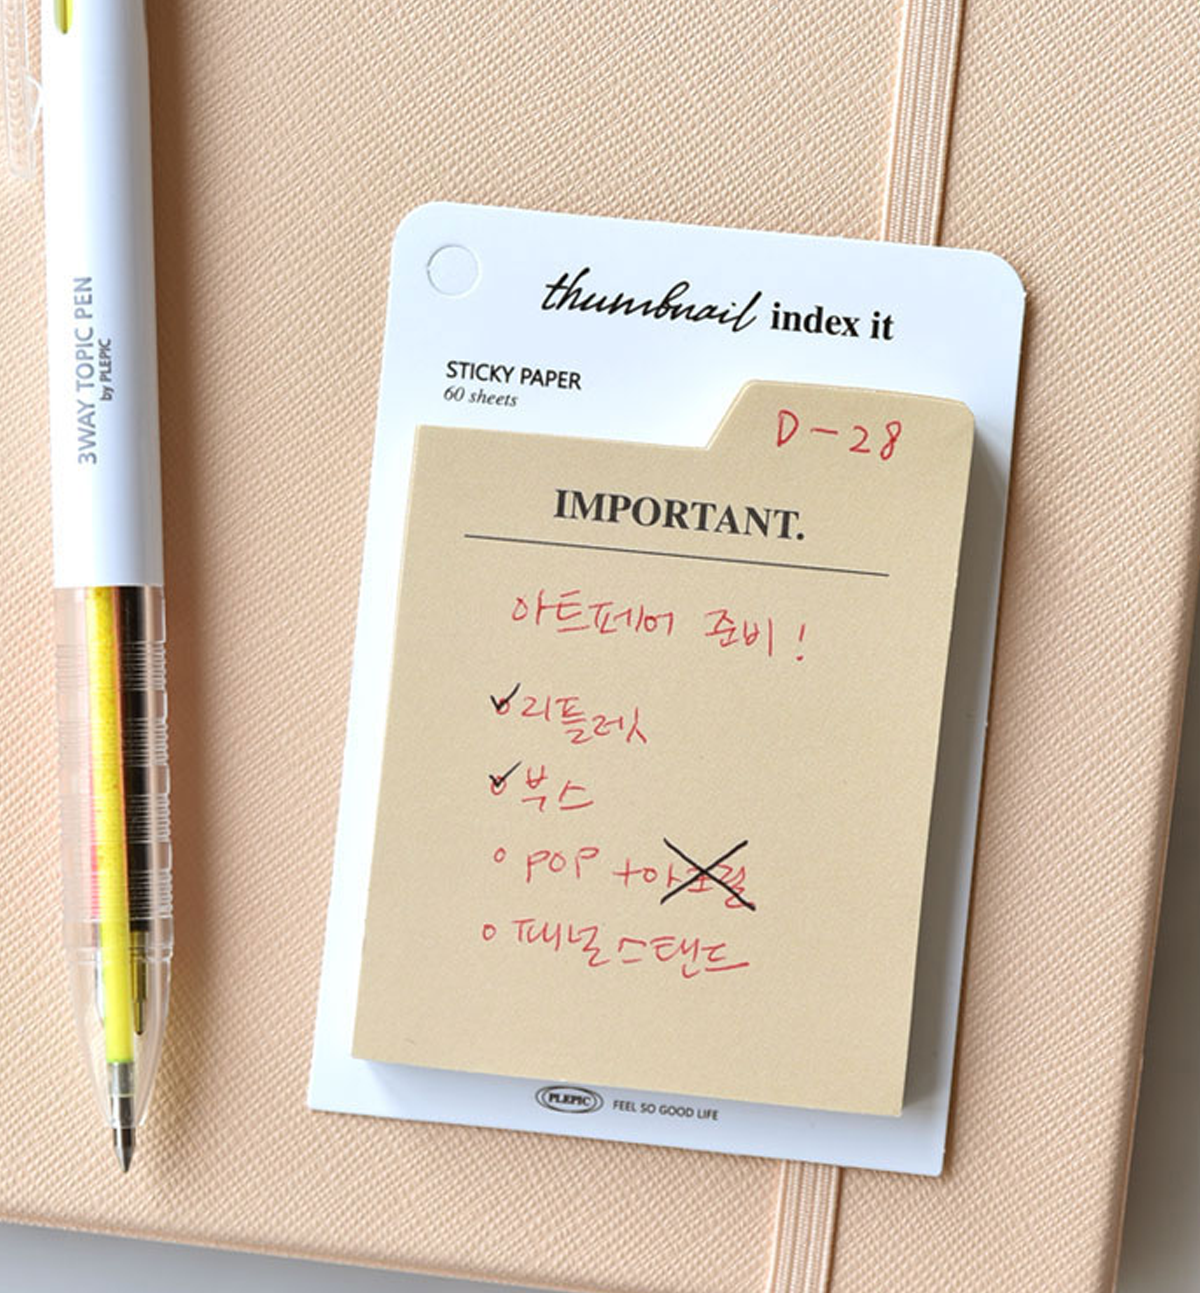 3WAY TOPIC PEN
by PLEPIC
thumbnail index it
STICKY PAPER
60 sheets
D-28
IMPORTANT.
아트페어 준비!
리플렛
부스
POP +아크릴
패널스탠드
PLEPIC FEEL SO GOOD LIFE